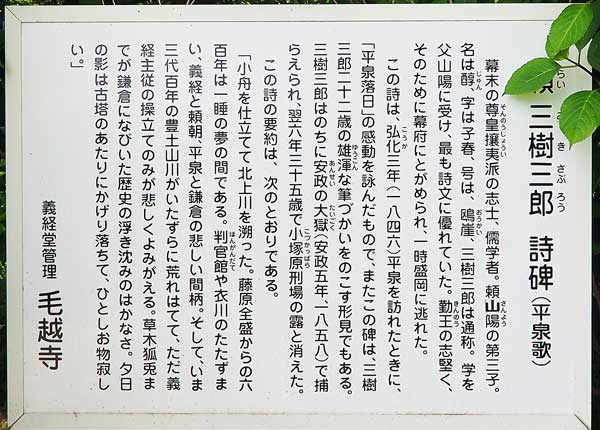 頼 三樹三郎 詩碑(平泉歌)
幕末の尊皇攘夷派の志士、儒学者。頼山陽の第三子。
名は醇、字は子春、号は、鴎崖、三樹三郎は通称。学を
父山陽に受け、最も詩文に優れていた。勤王の志堅く、
そのために幕府にとがめられ、一時盛岡に逃れた。
この詩は、弘化三年(一八四六)平泉を訪れたときに、
「平泉落日」の感動を詠んだもので、またこの碑は、三樹
三郎二十二歳の雄渾な筆づかいをのこす形見でもある。
三樹三郎はのちに安政の大獄(安政五年、一八五八)で捕
らえられ、翌六年三十五歳で小塚原刑場の露と消えた。
この詩の要約は、次のとおりである。
「小舟を仕立てて北上川を溯った。藤原全盛からの六
百年は一睡の夢の間である。判官館や衣川のたたずま
い、義経と頼朝、平泉と鎌倉の悲しい間柄。そして、いま
三代百年の豊土山川がいたずらに荒れはてて、ただ義
経主従の操立てのみが悲しくよみがえる。草木狐兎ま
でが鎌倉になびいた歴史の浮き沈みのはかなさ。夕日
の影は古塔のあたりにかげり落ちて、ひとしお物寂し
い。」
義経堂管理 毛越寺